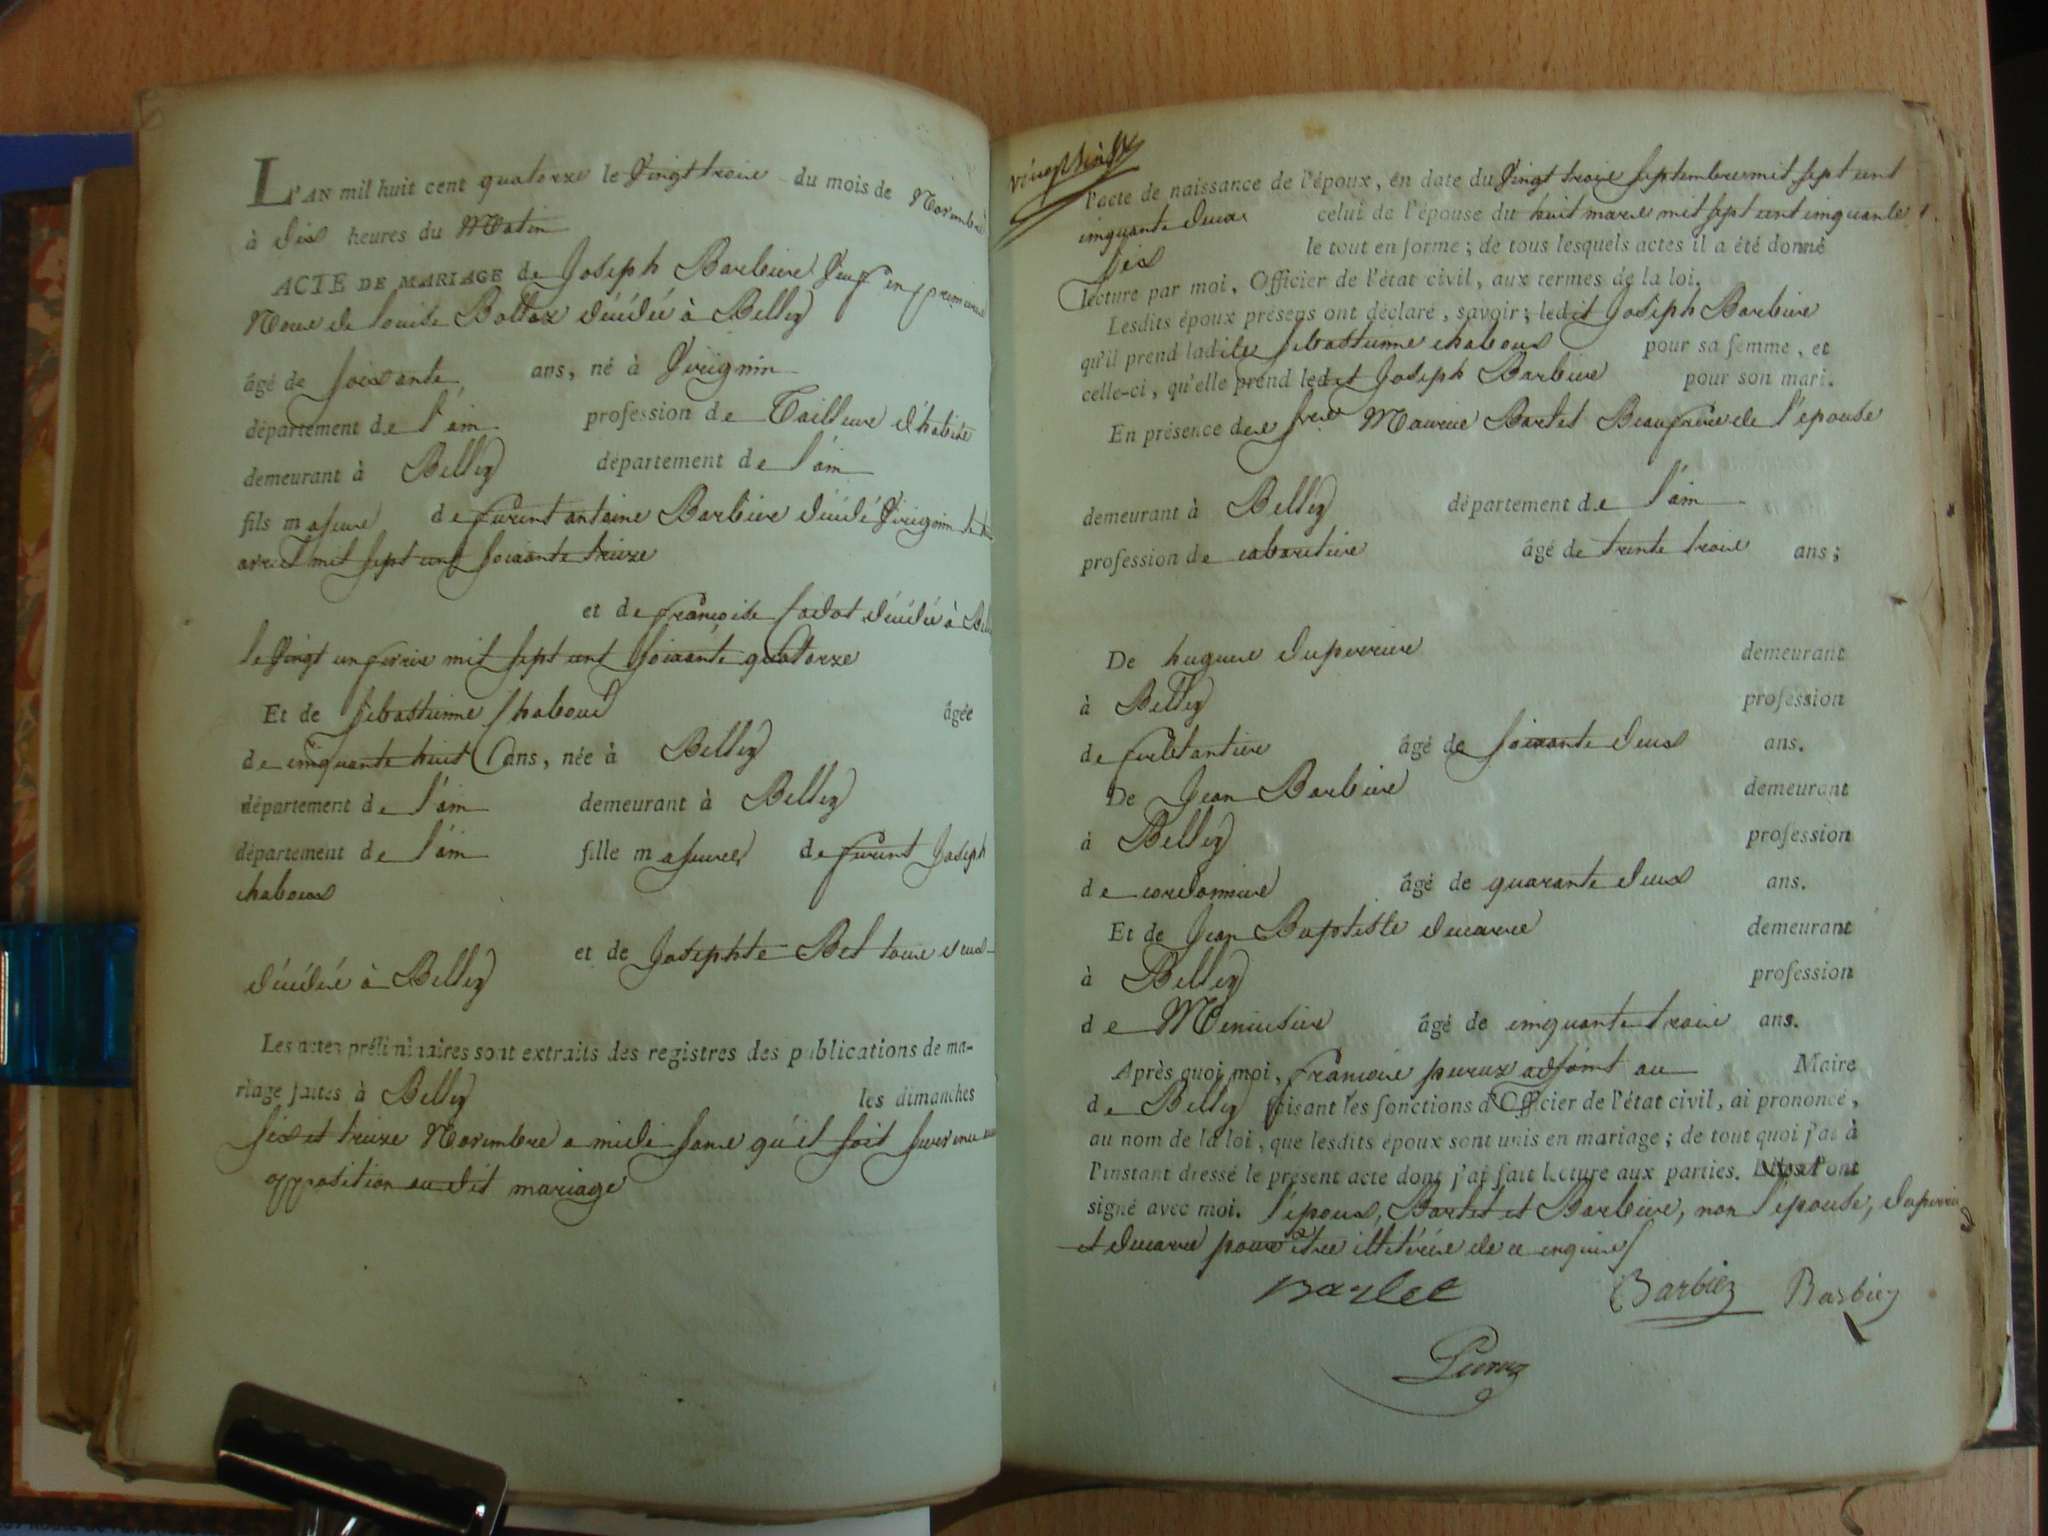 L'AN mil huit cent quatorze le Vingt trois du mois de Novembre
à dix heures du Matin
ACTE DE MARIAGE de Joseph Barbier Veuf en premiere
Noce de Louise Bottex décédée à Belley
âgé de soixante ans, né à Virignin
département de l'ain profession de Tailleur d'habits
demeurant à Belley département de l'ain
fils majeur de furent antoine Barbier décédé Virignin
avril mil sept cent soixante treize
et de françoise décédée à
le Vingt un mil sept cent soixante quatorze
Et de sebastienne Chaboud âgée
de cinquante huit ans, née à Belley
département de l'ain demeurant à Belley
département de l'ain fille majeure de furent Joseph
chaboud
et de Josephte Bel tous deux
décédés à Belley
Les actes préliminaires sont extraits des registres des publications de ma-
riage faites à Belley les dimanches
six et treize Novembre a midi sans qu'il soit survenu
opposition au dit mariage
l'acte de naissance de l'époux, en date du Vingt trois septembre mil sept cent
cinquante deux celui de l'épouse du huit mars mil sept cent cinquante
six le tout en forme; de tous lesquels actes il a été donné
lecture par moi, Officier de l'état civil, aux termes de la loi.
Lesdits époux présens ont déclaré, savoir; ledit Joseph Barbier
qu'il prend ladite sebastienne chaboud pour sa femme, et
celle-ci, qu'elle prend ledit Joseph Barbier pour son mari.
En présence des Maurice Bartet Beaufrere de l'epouse
demeurant à Belley département de l'ain
profession de cabaretier âgé de trente trois ans;
De hugues duperrier demeurant
à Belley profession
de ferblantier âgé de soixante deux ans.
De Jean Barbier demeurant
à Belley profession
de cordonnier âgé de quarante deux ans.
Et de Jean Baptiste ducarre demeurant
à Belley profession
de Menuisier âgé de cinquante trois ans.
Après quoi moi, francois adjoint au Maire
de Belley faisant les fonctions d'Officier de l'état civil, ai prononcé,
au nom de la loi, que lesdits époux sont unis en mariage; de tout quoi j'ai à
l'instant dressé le présent acte dont j'ai fait lecture aux parties. l'ont
signé avec moi. l'epoux, Bartet et Barbier, non l'epouse, duperrier
et ducarre pour être illitérés de ce enquis
Bartet Barbiez Barbiez